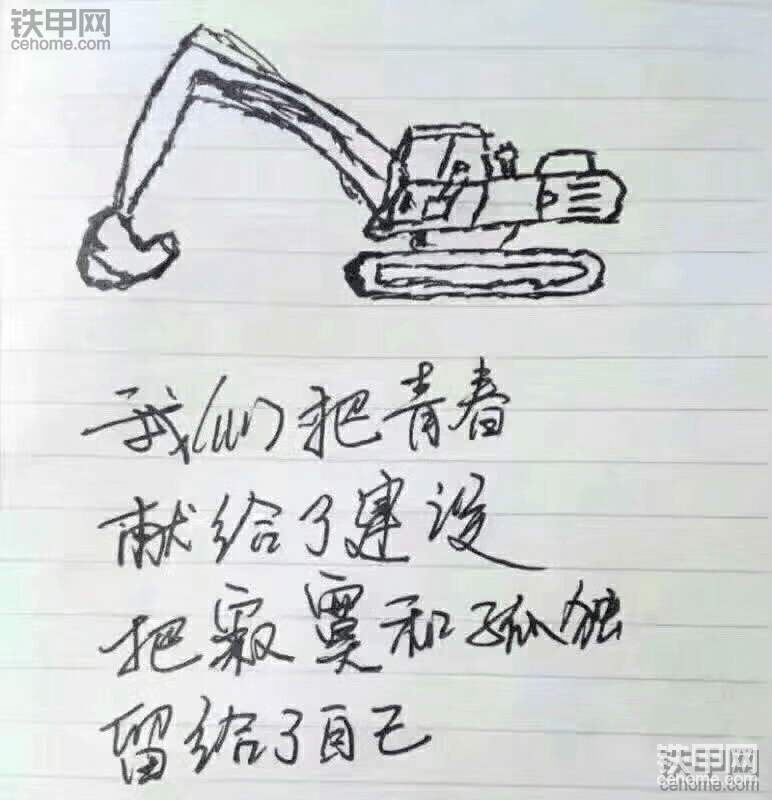 铁甲网
cehome.com
我们把青春
献给了建设
把寂寞和孤独
留给了自己
铁甲网
cehome.com